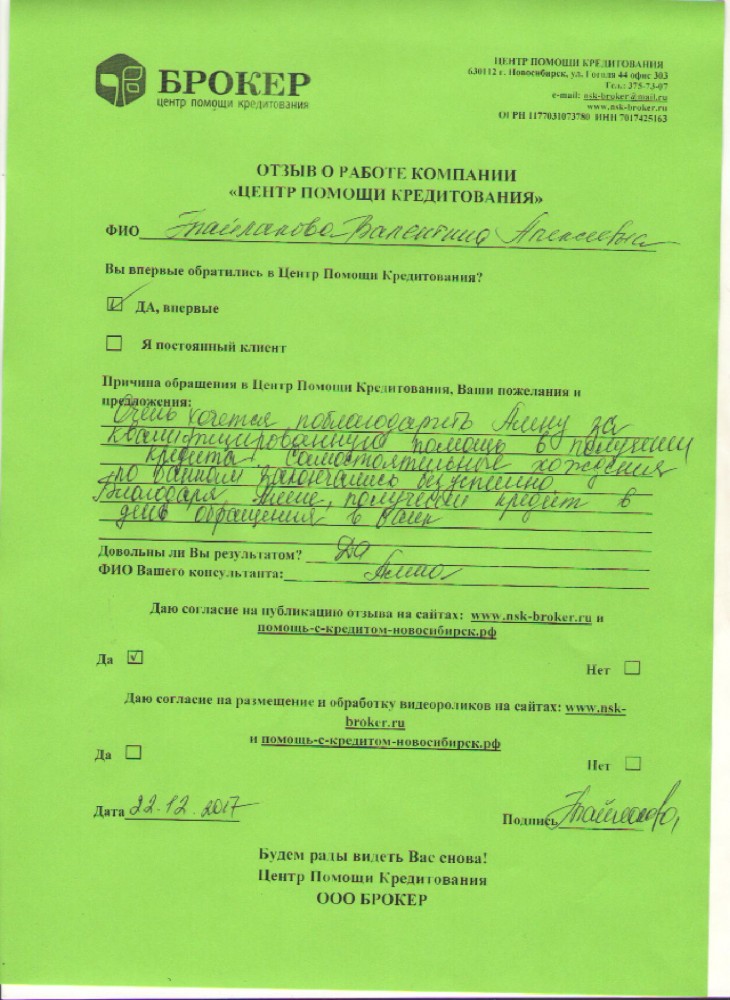 БРОКЕР
центр помощи кредитования
ЦЕНТР ПОМОЩИ КРЕДИТОВАНИЯ
630112 г. Новосибирск, ул. Гоголя 44 офис 303
Тел.: 375-73-07
e-mail: nsk-broker@mail.ru
www.nsk-broker.ru
ОГРН 1177031073780 ИНН 7017425163
ОТЗЫВ О РАБОТЕ КОМПАНИИ
«ЦЕНТР ПОМОЩИ КРЕДИТОВАНИЯ»
ФИО Валентина Алексеевна
Вы впервые обратились в Центр Помощи Кредитования?
ДА, впервые
Я постоянный клиент
Причина обращения в Центр Помощи Кредитования, Ваши пожелания и
предложения:
Очень хочется поблагодарить Алину за
квалифицированную помощь в получении
кредита. Самостоятельные хождения
по банкам закончились безуспешно
Благодаря Алине, получили кредит в
день обращения в банк
Довольны ли Вы результатом? Да
ФИО Вашего консультанта: Алина
Даю согласие на публикацию отзыва на сайтах: www.nsk-broker.ru и
помощь-с-кредитом-новосибирск.рф
Да
Нет
Даю согласие на размещение и обработку видеороликов на сайтах: www.nsk-
broker.ru
и помощь-с-кредитом-новосибирск.рф
Да
Нет
Дата 22.12.2017
Подпись
Будем рады видеть Вас снова!
Центр Помощи Кредитования
ООО БРОКЕР